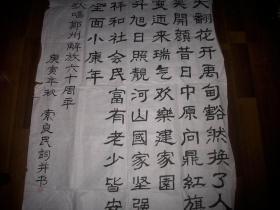 大翻花开禹甸豁然换了人
笑開顔昔日中原问鼎红旗
来瑞气欢樂建家園
升旭日照靓河山國家坚强
祥和社会民富有老少皆安
全面小康年
欢唱鄭州解放六十周年
庚寅年秋 索良民詞并书